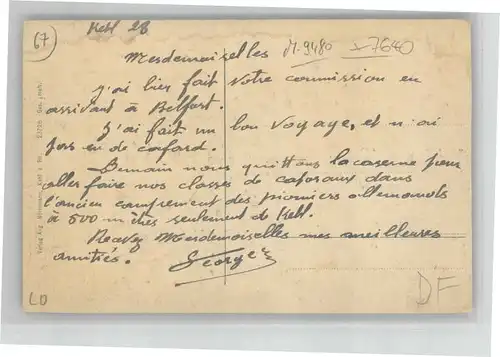 67
Kehl 28
M-9480 7640
Mesdemoiselles
J'ai hier fait votre commission en
arrivant à Belfort.
J'ai fait un bon voyage, et n'ai
pas eu de cafard.
Demain nous quittons la caserne pour
aller faire nos classes de caporaux dans
l'ancien campement des pionniers allemands
à 500 mètres seulement de Kehl.
Recevez Mesdemoiselles mes meilleures
amitiés. Georges
LD
DF